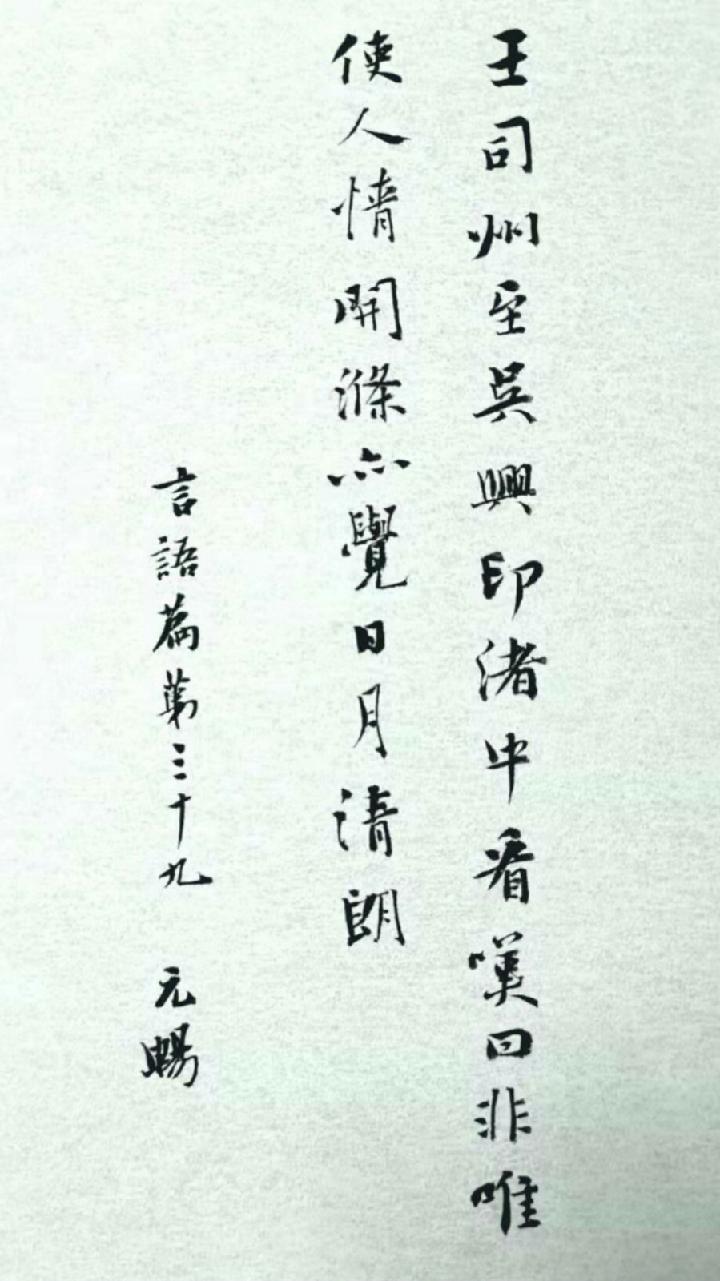 王司州至吳興印渚中看嘆曰非唯
使人情開滌亦覺日月清朗
言語篇第三十九 元暢